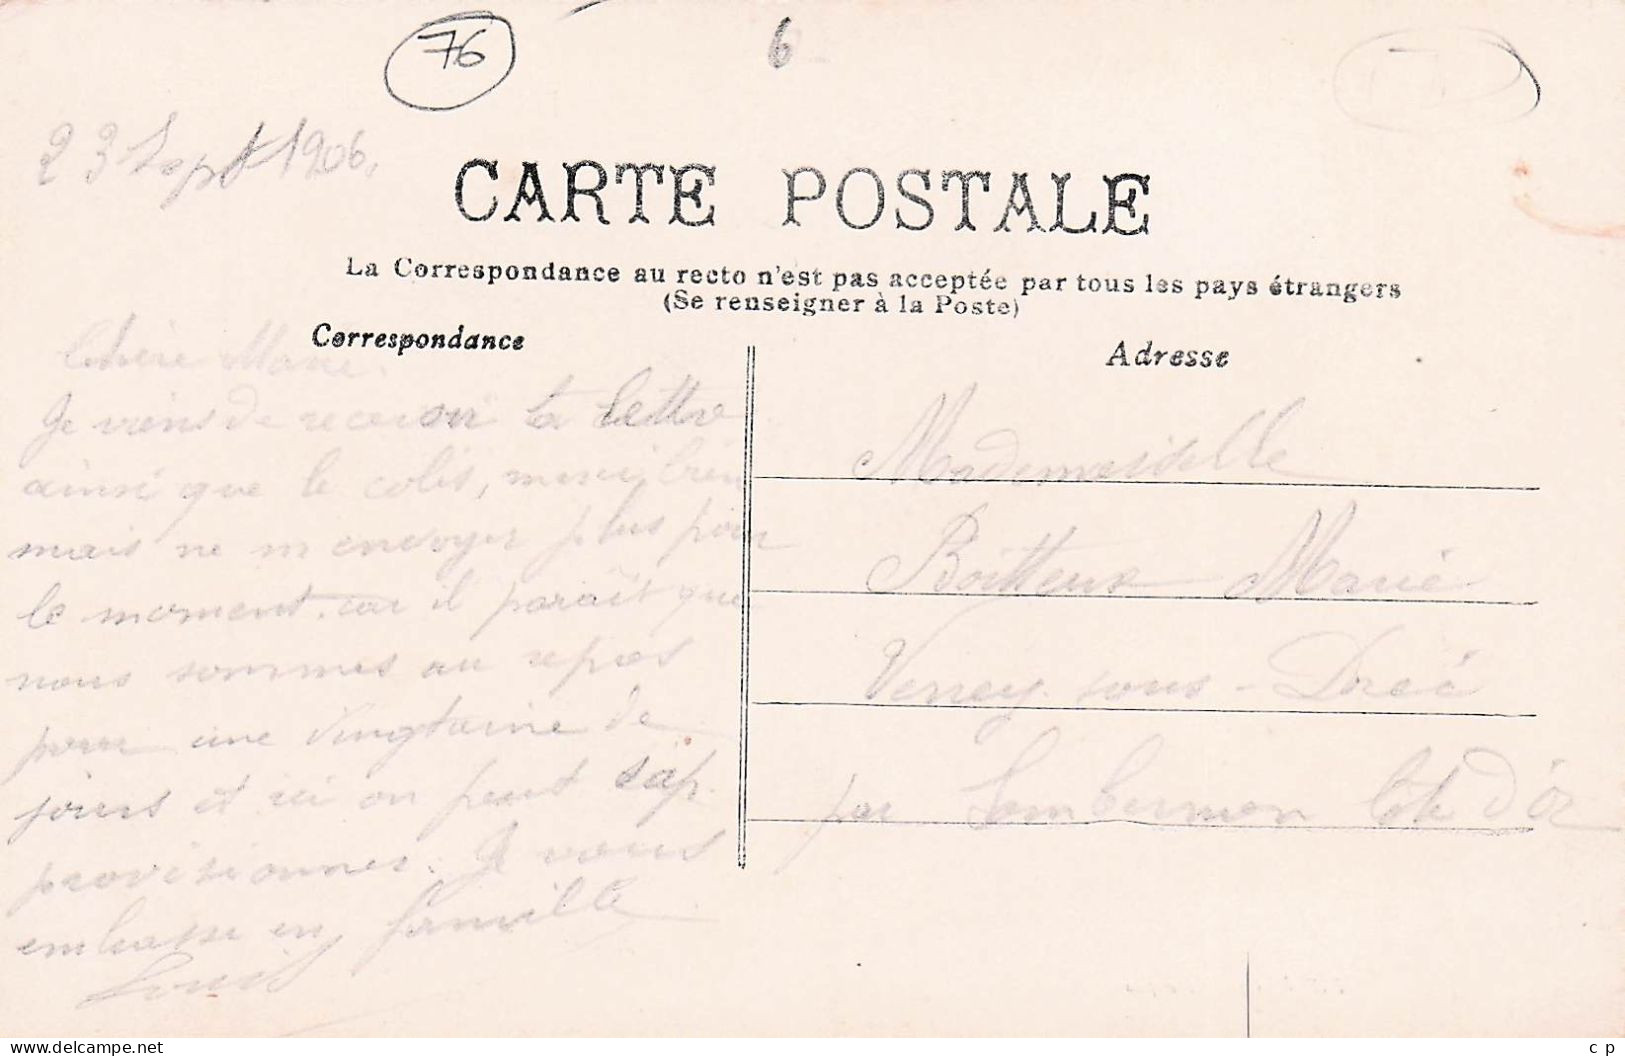 76
6
23 Sept 1906.
CARTE POSTALE
La Correspondance au recto n'est pas acceptée par tous les pays étrangers
(Se renseigner à la Poste)
Correspondance
Chère Marie.
Je viens de recevoir ta lettre
ainsi que le colis, merci bien
mais ne m envoyer plus pour
le moment. car il paraît que
nous sommes au repos
pour une vingtaine de
jours et ici on peut s'ap.
provisionner. Je vous
embrasse en famille
Louis
Adresse
Mademoiselle
Boitteux Marie
Verrey-sous-Drée
par Sombernon Côte d'Or
www.delcampe.net
c p